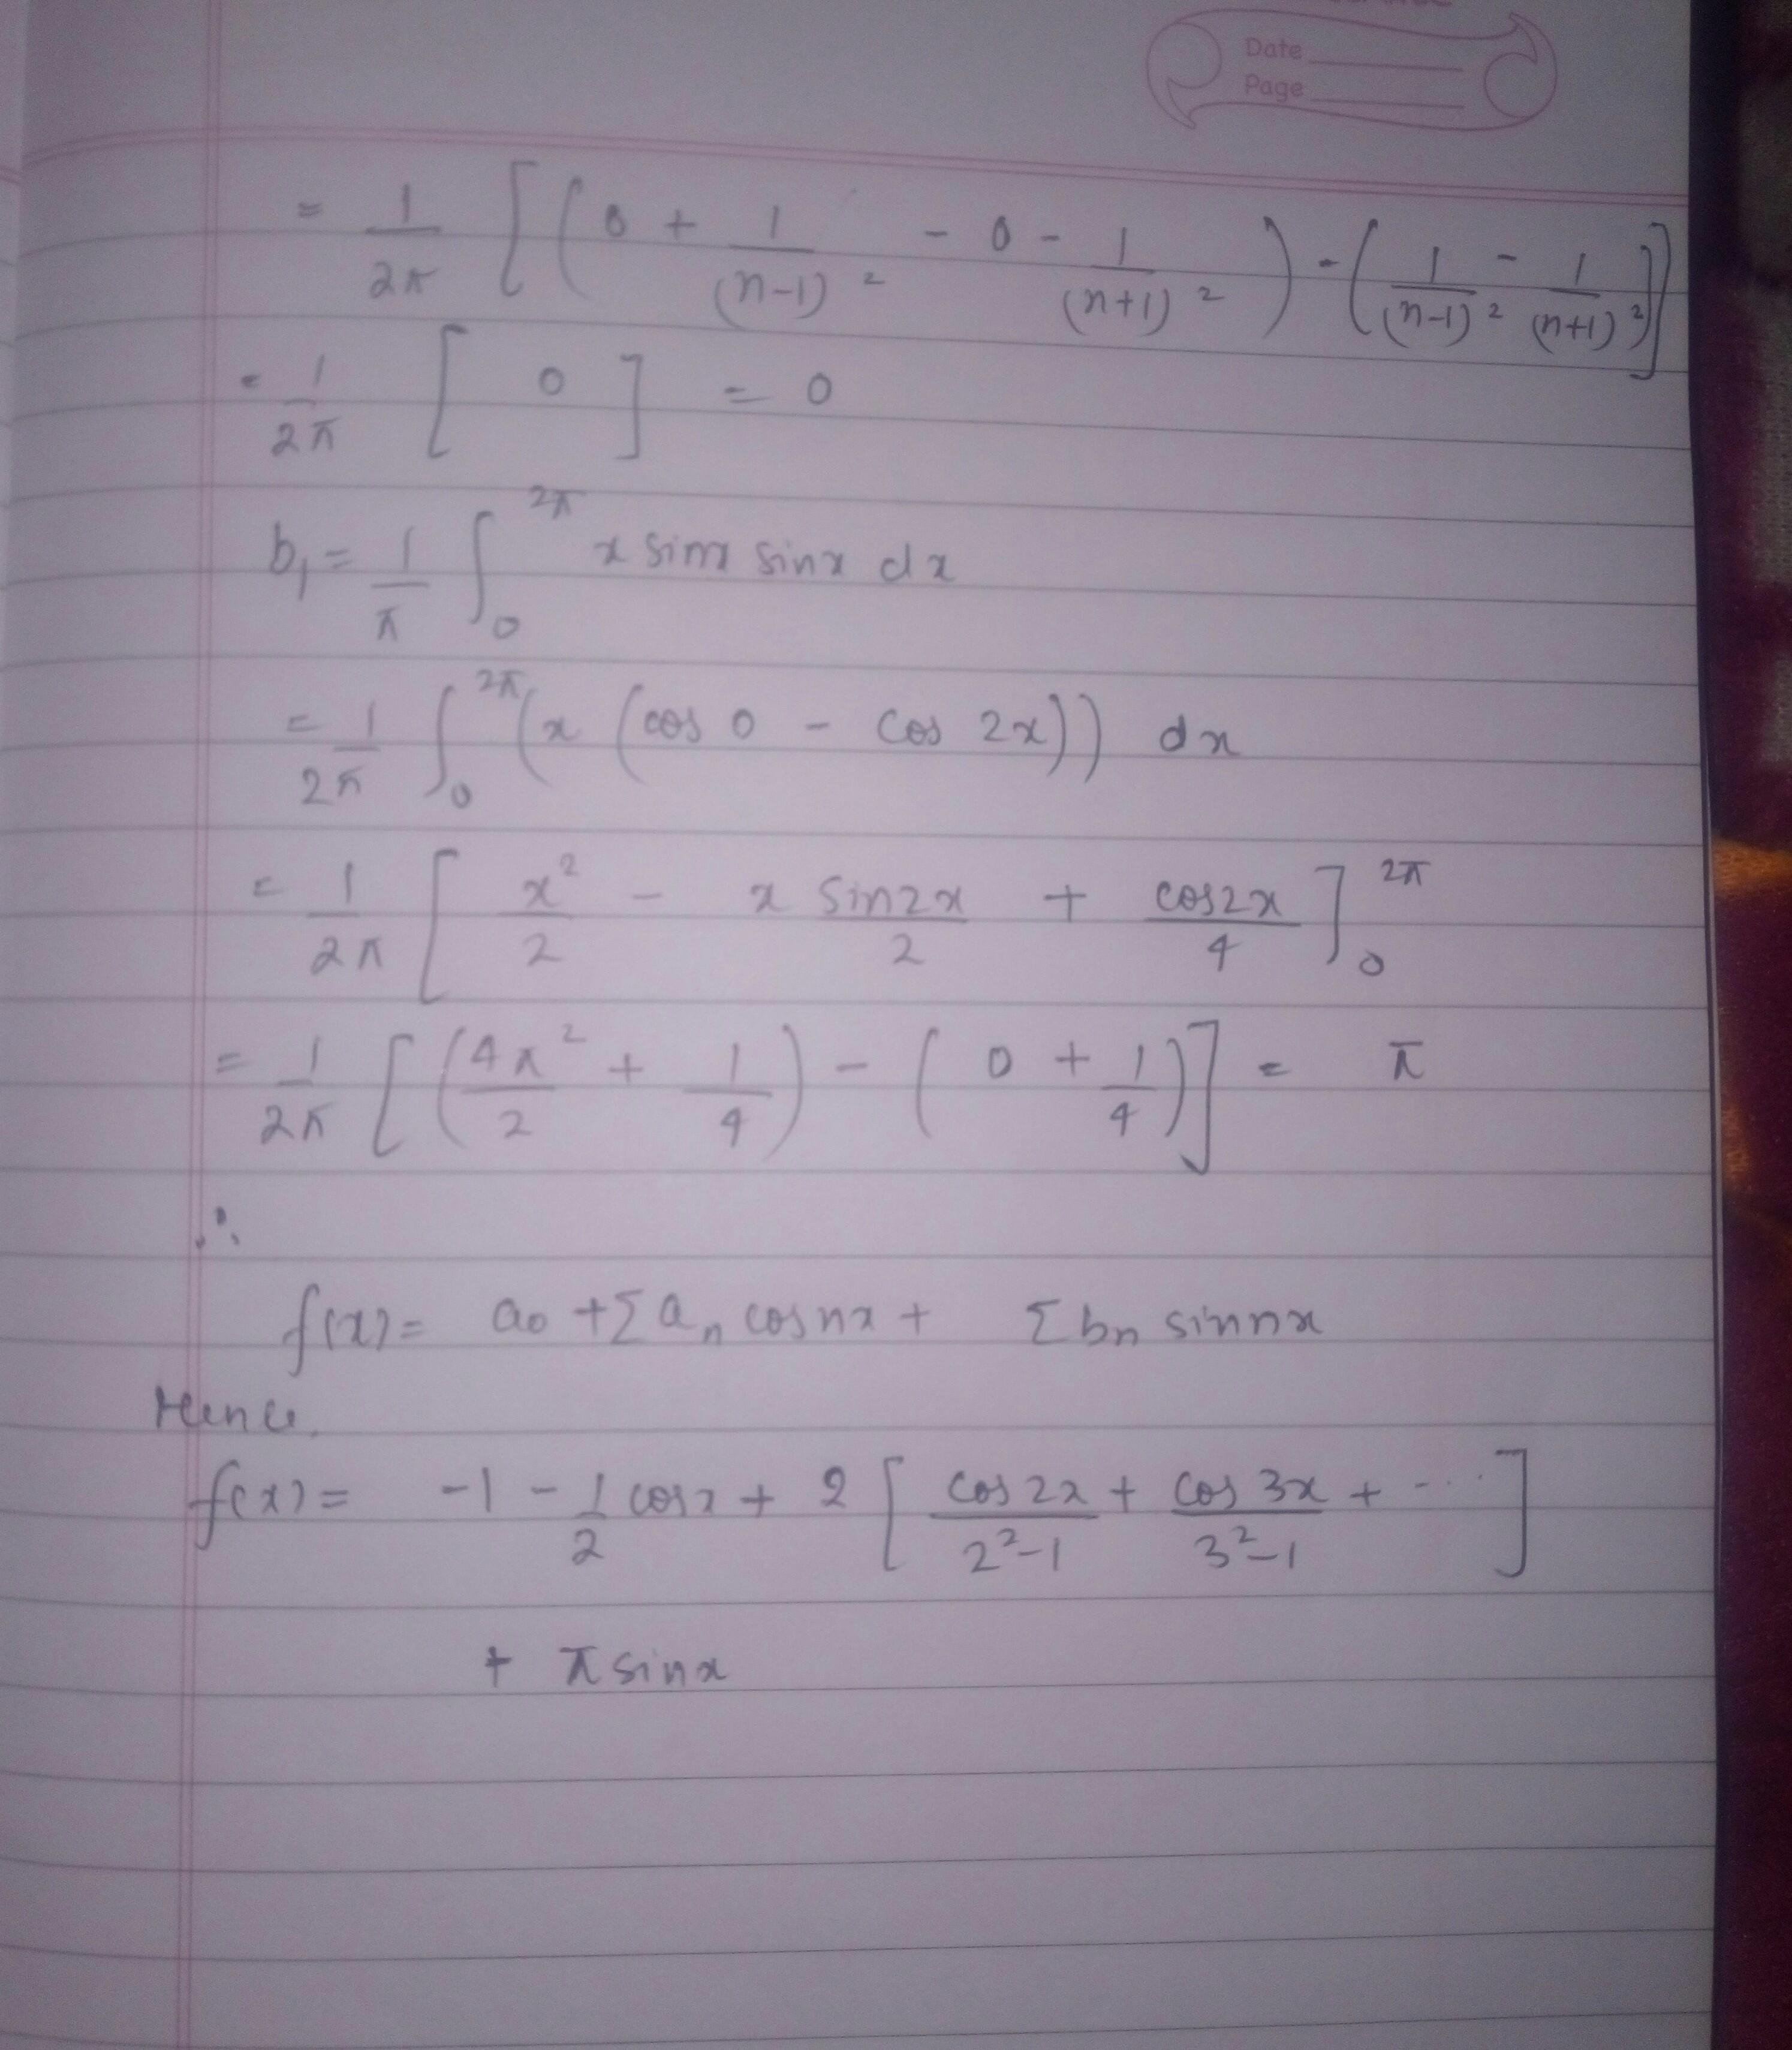 Date
Page
= 1/2π [(0 + 1/(n-1)² - 0 - 1/(n+1)²) - (1/(n-1)² - 1/(n+1)²)]
= 1/2π [ 0 ] = 0
b₁ = 1/π ∫₀^2π x sinx sinx dx
= 1/2π ∫₀^2π (x (cos 0 - cos 2x)) dx
= 1/2π [ x²/2 - x sin2x/2 + cos2x/4 ]₀^2π
= 1/2π [(4π²/2 + 1/4) - (0 + 1/4)] = π
∴
f(x) = a₀ + Σ aₙ cosnx + Σ bₙ sinnx
Hence,
f(x) = -1 - 1/2 cosx + 2 [ cos 2x/2²-1 + cos 3x/3²-1 + ... ]
+ π sinx